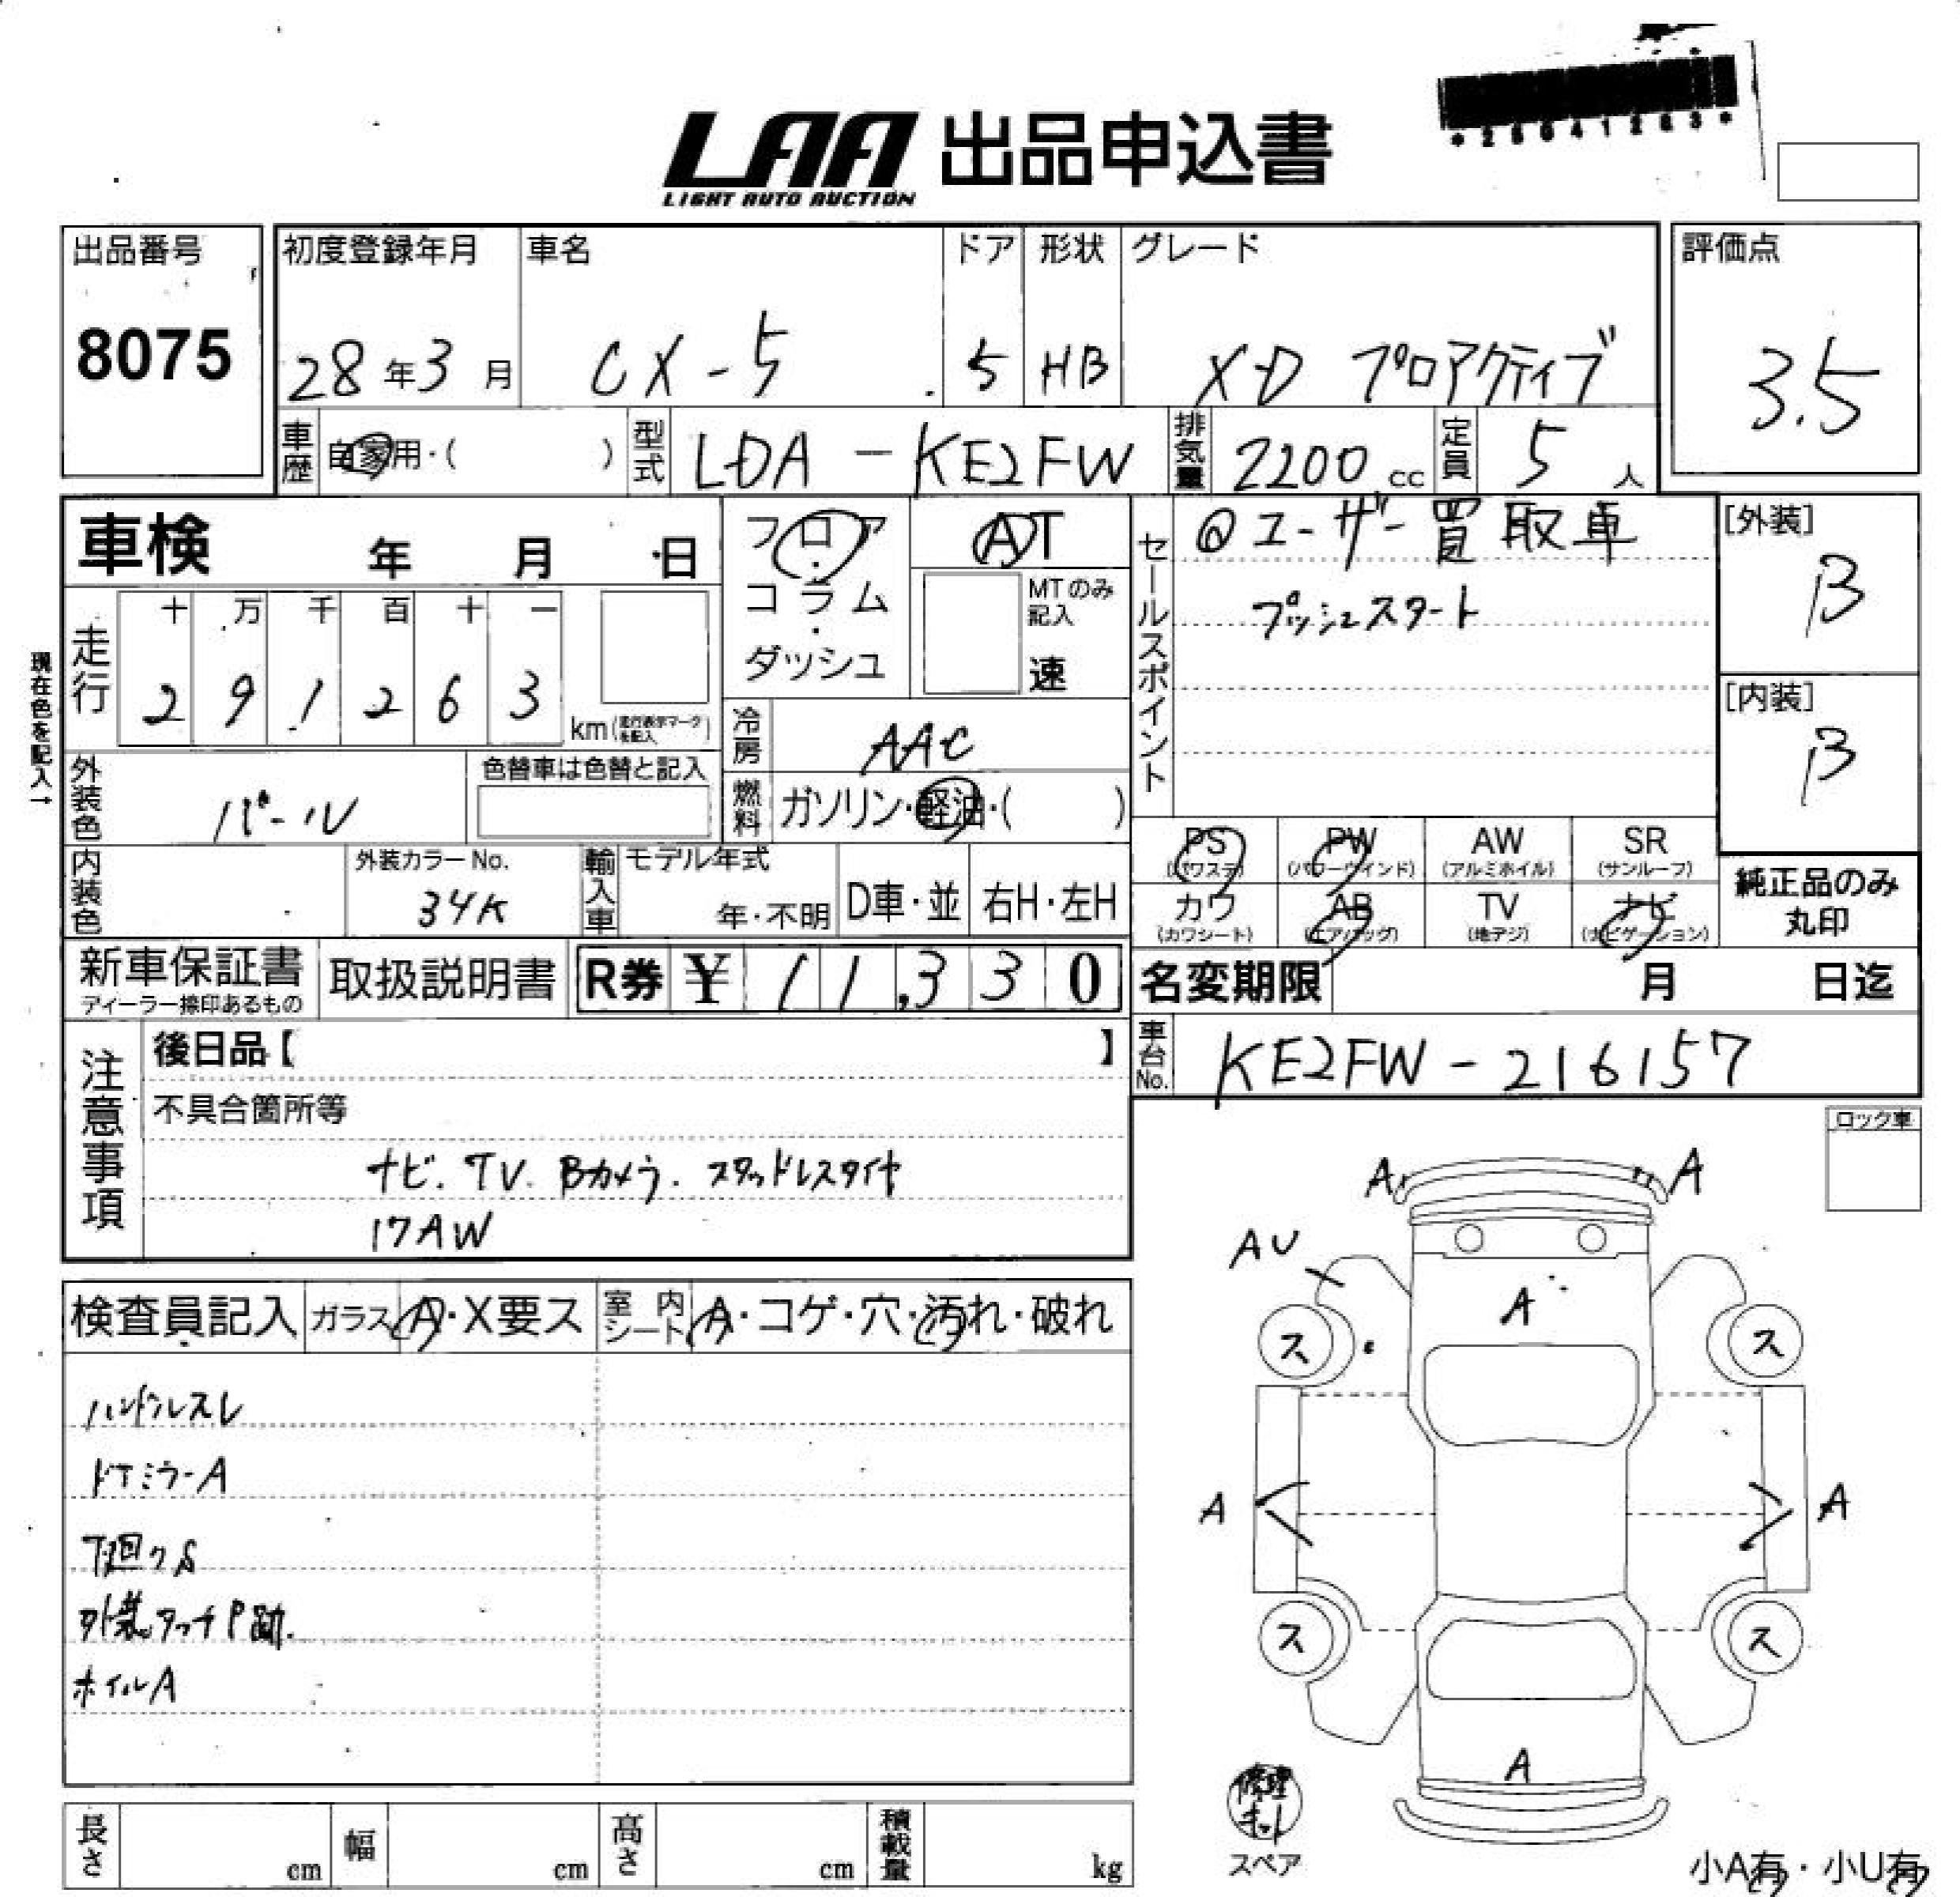 *25041263*
LAA 出品申込書
LIGHT AUTO AUCTION
出品番号 初度登録年月 車名 ドア 形状 グレード 評価点
8075 28年3月 CX-5 5 HB XD プロアクティブ 3.5
車歴 自家用・( ) 型式 LDA-KE2FW 排気量 2200cc 定員 5人
車検 年 月 日
フロア・コラム・ダッシュ
AT
MTのみ記入
速
セールスポイント
@ユーザー買取車
プッシュスタート
[外装]
B
[内装]
B
現在色を記入→
走行 十 万 千 百 十 一
2 9 1 2 6 3 km(走行表示マークを記入)
冷房 AAC
外装色 パール 色替車は色替と記入
燃料 ガソリン・軽油・( )
内装色 外装カラーNo. 34K 輸入車 モデル年式 年・不明 D車・並 右H・左H
PS (パワステ) PW (パワーウインド) AW (アルミホイル) SR (サンルーフ)
カワ (カワシート) AB (エアバッグ) TV (地デジ) ナビ (ナビゲーション)
純正品のみ丸印
新車保証書 ディーラー捺印あるもの 取扱説明書 R券 ¥11,330
名変期限 月 日迄
車台No. KE2FW-216157
注意事項
後日品【 】
不具合箇所等
ナビ. TV. Bカメラ. スタッドレスタイヤ
17AW
ロック車
検査員記入 ガラス A・X要ス 室内シート A・コゲ・穴・汚れ・破れ
ハンドルスレ
ドアミラーA
下廻りS
外装タッチP跡.
ホイルA
A A
AU
A
ス ス
A A
ス ス
A
修理キット
スペア
小A有・小U有
長さ cm 幅 cm 高さ cm 積載量 kg